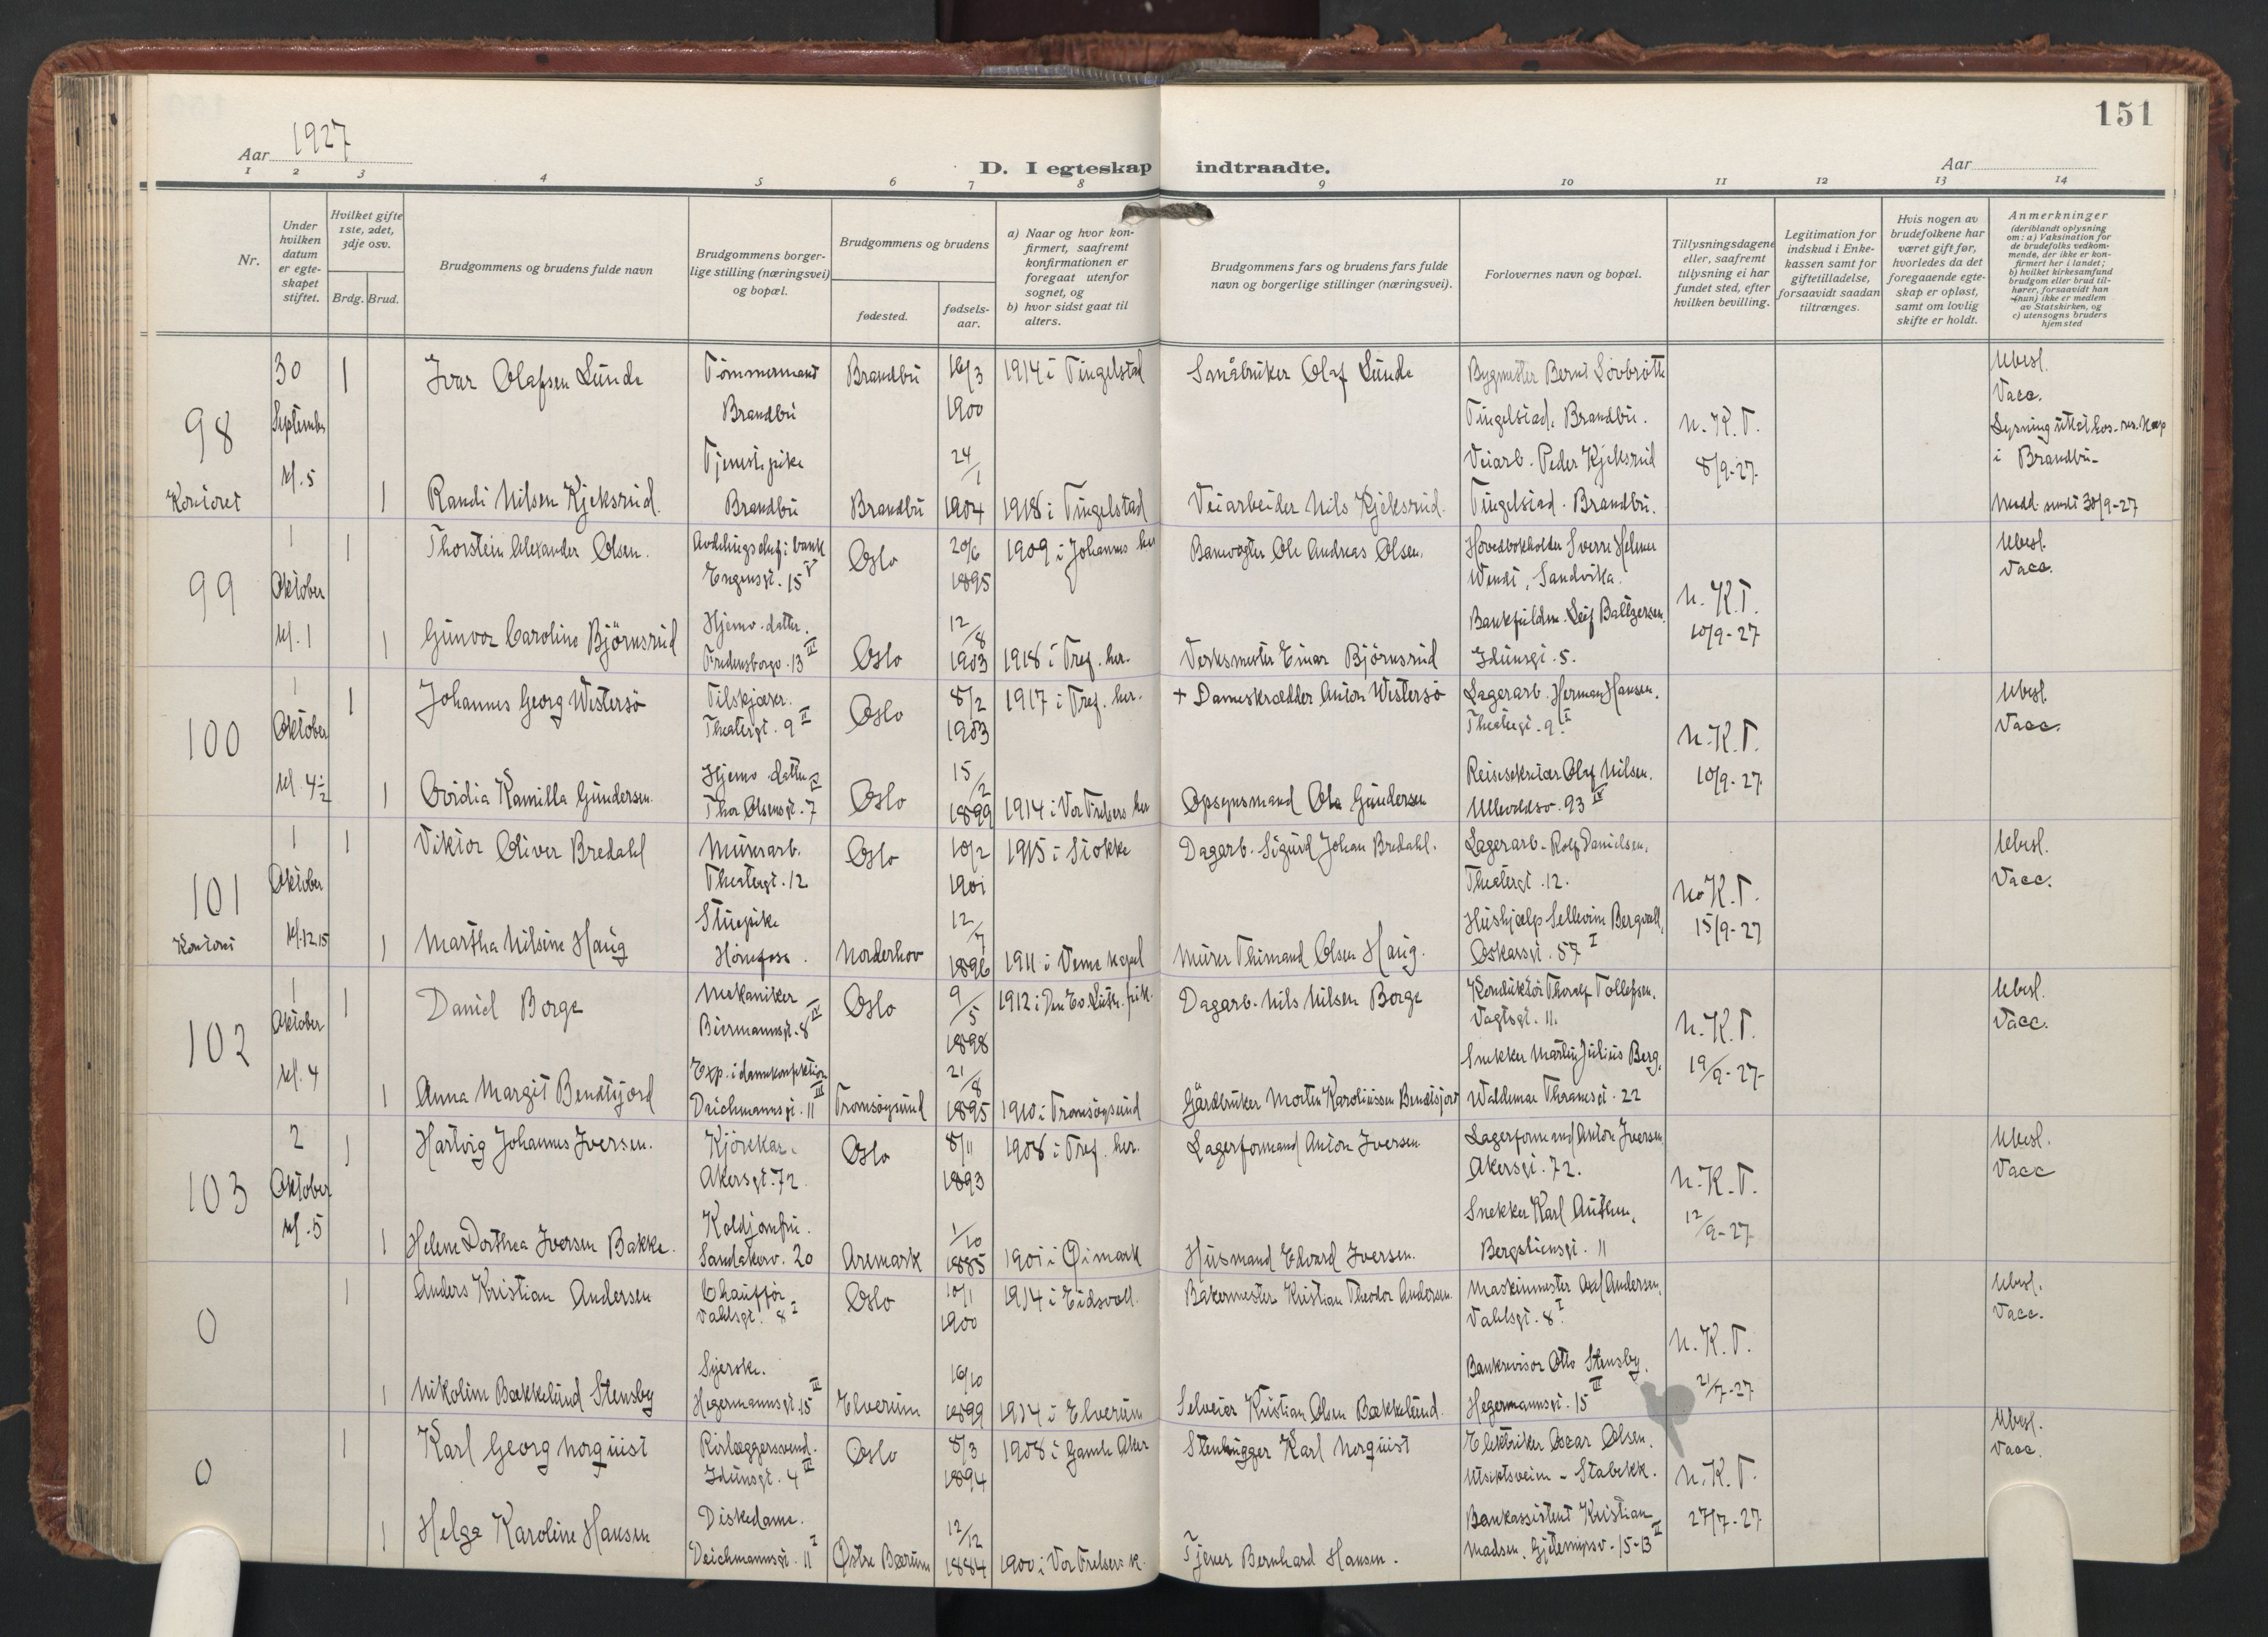 151
Aar 1927
D. I egteskap indtraadte.
Aar
1 2 3 4 5 6 7 8 9 10 11 12 13 14
Nr.
Under hvilken datum er egteskapet stiftet.
Hvilket gifte 1ste, 2det, 3dje osv.
Brdg. Brud.
Brudgommens og brudens fulde navn
Brudgommens borgerlige stilling (næringsvei) og bopæl.
Brudgommens og brudens
fødested.
fødselsaar.
a) Naar og hvor konfirmert, saafremt konfirmationen er foregaat utenfor sognet, og
b) hvor sidst gaat til alters.
Brudgommens fars og brudens fars fulde navn og borgerlige stillinger (næringsvei).
Forlovernes navn og bopæl.
Tillysningsdagene eller, saafremt tillysning ei har fundet sted, efter hvilken bevilling.
Legitimation for indskud i Enkekassen samt for giftetilladelse, forsaavidt saadan tiltrænges.
Hvis nogen av brudefolkene har været gift før, hvorledes da det foregaaende egteskap er opløst, samt om lovlig skifte er holdt.
Anmerkninger (deriblandt oplysning om: a) Vaksination for de brudefolks vedkommende, der ikke er konfirmert her i landet; b) hvilket kirkesamfund brudgom eller brud tilhører, forsaavidt han (hun) ikke er medlem av Statskirken, og c) utensogns bruders hjemsted
98 Kontoret
30 September kl. 5
1 Ivar Olafsen Lunde
Tømmermand Brandbu
Brandbu
16/3 1900
1914 i Tingelstad
Småbruker Olaf Lunde
Bygmester Bernt Løvbrøtte
Tingelstad, Brandbu.
1 Randi Nilsen Kjeksrud.
Tjenestepike Brandbu
Brandbu
24/1 1904
1918 i Tingelstad
Veiarbeider Nils Kjeksrud.
Veiarb. Peder Kjeksrud
Tingelstad. Brandbu.
N.K.T. 8/9-27.
Ubesl.
Vacc.
Lysning uttat hos res. kap
i Brandbu
Medd. sendt 30/9-27
99
1 Oktober kl. 1
1 Thorstein Alexander Olsen.
Avdelingschef i bank
Engensgt. 15 V
Oslo
20/6 1895
1909 i Johannes her
Banevogter Ole Andreas Olsen.
Hovedbokholder Sverre Helmer
Wendt, Sandvika.
1 Gunvor Caroline Bjørnsrud
Hjemv. datter.
Fredensborgv. 13 III
Oslo
12/8 1903
1918 i Tref. her.
Verksmester Einar Bjørnsrud
Bankfuldm. Leif Baltzersen.
Idunsgt. 5.
N.K.T. 10/9-27
Ubesl.
Vacc.
100
1 Oktober kl. 4½
1 Johannes Georg Westersø
Tilskjærer.
Theatergt. 9 II
Oslo
8/2 1903
1917 i Tref. her.
+ Dameskrædder Anton Westersø
Lagerarb. Herman Hansen.
Theatergt. 9 I
1 Ovidia Kamilla Gundersen.
Hjemv. datter
Thor Olsensgt. 7 IV
Oslo
15/2 1899
1914 i Vor Frelsers her
Opsynsmand Ole Gundersen
Reisesekretær Olaf Nilsen.
Ullevoldsv. 93 IV
N.K.T. 10/9-27.
Ubesl.
Vacc.
101 Kontoret
1 Oktober kl. 12.15
1 Viktor Oliver Bredahl
Murerarb.
Theatergt. 12
Oslo
10/2 1901
1915 i Stokke
Dagarb. Sigurd Johan Bredahl.
Lagerarb. Rolf Danielsen.
Theatergt. 12.
1 Martha Nilsine Haug
Stuepike
Hønefoss.
Norderhov
12/7 1896
1911 i Veme kapel
Murer Thimand Olsen Haug.
Hushjælp Sellevine Bergvall,
Oskarsgt. 57 I
N.K.T. 15/9-27
Ubesl.
Vacc.
102
1 Oktober kl. 4
1 Daniel Borge
Mekaniker
Biermannsgt. 8 IV
Oslo
9/5 1898
1912 i Den Ev. Luth. frik.
Dagarb. Nils Nilsen Borge
Konduktør Thoralf Tollefsen.
Vagtsgt. 11.
1 Anna Margit Bendtsjord
Exp. i damekonfektion
Deichmannsgt. 11 III
Tromsøysund
21/8 1895
1910 i Tromsøysund
Gårdbruker Morten Karoliussen Bendtsjord
Snekker Martin Julius Berg,
Waldemar Thranesgt. 22
N.K.T. 19/9-27-
Ubesl.
Vacc.
103
2 Oktober kl. 5
1 Hartvig Johannes Iversen.
Kjørekar.
Akersgt. 72
Oslo
8/11 1893
1908 i Tref. her.
Lagerformand Anton Iversen
Lagerformand Anton Iversen,
Akersgt. 72.
1 Helene Dorthea Iversen Bakke.
Koldjomfru.
Sandakerv. 20
Aremark
1/10 1885
1901 i Øimark
Husmand Edvard Iversen.
Snekker Karl Authen,
Bergstiensgt. 11
N.K.T. 12/9-27
Ubesl.
Vacc
0
1 Anders Kristian Andersen
Chauffør
Vahlsgt. 8 I
Oslo
10/1 1900
1914 i Eidsvoll.
Bakermester Kristian Theodor Andersen.
Maskinmester Axel Andersen,
Vahlsgt. 8 I
1 Nikoline Bækkelund Stensby
Syerske.
Hegermannsgt. 15 III
Elverum
16/10 1899
1914 i Elverum
Selveier Kristian Olsen Bækkelund.
Bankrevisor Otto Stensby.
Hegermannsgt. 15 III
N.K.T. 21/7-27
Ubesl.
Vacc.
0
1 Karl Georg Norquist
Rørlæggersvend.
Idunsgt. 4 III
Oslo
8/3 1894
1908 i Gamle Aker
Stenhugger Karl Norquist
Elektriker Oscar Olsen.
Utsiktsveien - Stabekk.
1 Helga Karoline Hansen
Diskedame.
Deichmannsgt. 11 I
Østre Bærum
12/12 1884
1900 i Vor Frelsers k.
Tjener Bernhard Hansen.
Bankassistent Kristian
Madsen. 15-13 II
N.K.T. 27/7-27
Ubesl.
Vacc.